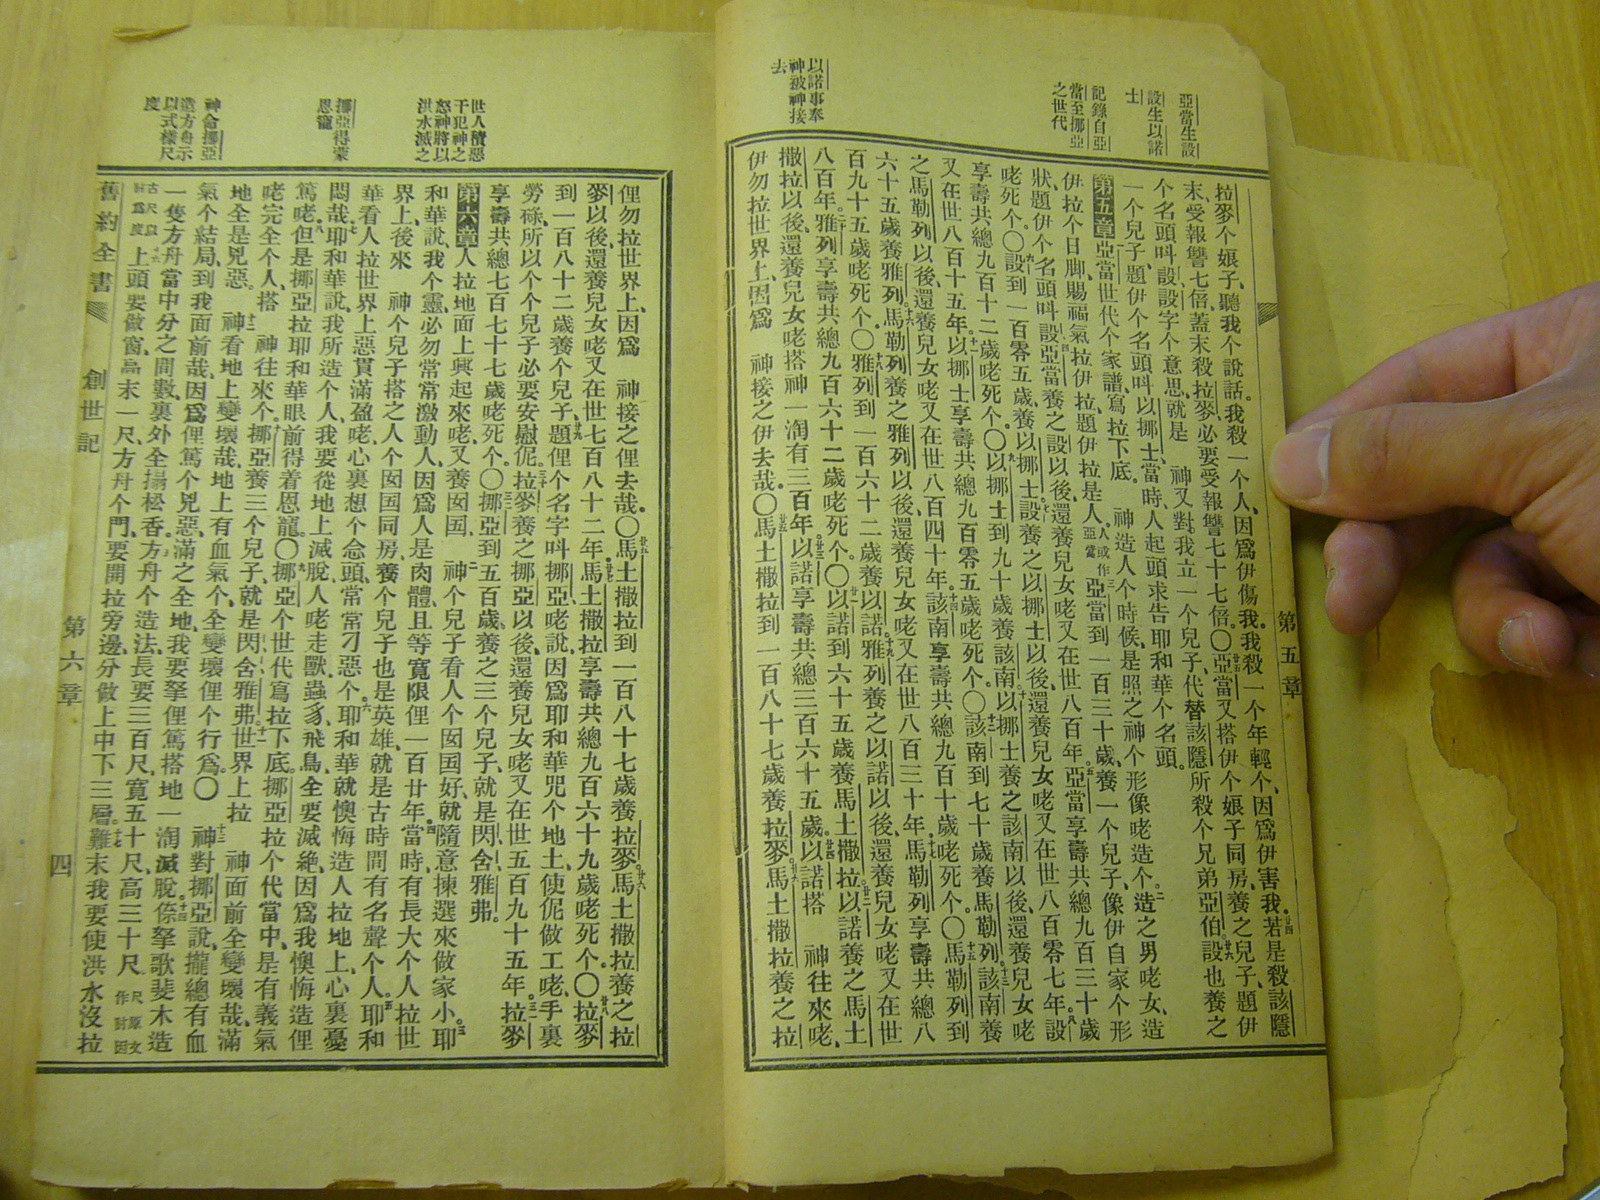 亞當生設
設生以諾
士
記錄自亞
當至挪亞
之世代
以諾事奉
神被神接
去
第五章
拉麥个娘子、聽我个說話。我殺一个人、因爲伊傷我。我殺一个年輕个、因爲伊害我。若是殺該隱
末、受報讐七倍、蓋末殺拉麥、必要受報讐七十七倍。〇亞當又搭伊个娘子同房、養之兒子、題伊
个名頭呌設、設字个意思、就是 神又對我立一个兒子、代替該隱所殺个兄弟亞伯。設也養之
一个兒子、題伊个名頭呌以挪士、當時、人起頭求告耶和華个名頭。
第五章 亞當世代个家譜、寫拉下底。 神造人个時候、是照之神个形像咾造个。造之男咾女、造
伊拉个日脚、賜福氣拉伊拉、題伊拉是人。人或作亞當 亞當到一百三十歲、養一个兒子、像伊自家个形
狀、題伊个名頭呌設。亞當養之設以後、還養兒女咾又在世八百年。亞當享壽共總九百三十歲
咾死个。〇設到一百零五歲、養以挪士。設養之以挪士以後、還養兒女咾又在世八百零七年。設
享壽共總九百十二歲咾死个。〇以挪士到九十歲、養該南。以挪士養之該南以後、還養兒女咾
又在世八百十五年。以挪士享壽共總九百零五歲咾死个。〇該南到七十歲、養馬勒列。該南養
之馬勒列以後、還養兒女咾又在世八百四十年。該南享壽共總九百十歲咾死个。〇馬勒列到
六十五歲、養雅列。馬勒列養之雅列以後、還養兒女咾又在世八百三十年。馬勒列享壽共總八
百九十五歲咾死个。〇雅列到一百六十二歲、養以諾。雅列養之以諾以後、還養兒女咾又在世
八百年。雅列享壽共總九百六十二歲咾死个。〇以諾到六十五歲、養馬土撒拉。以諾養之馬土
撒拉以後、還養兒女咾搭神一淘有三百年。以諾享壽共總三百六十五歲。以諾搭 神往來咾、
伊勿拉世界上、因爲 神接之伊去哉。〇馬土撒拉到一百八十七歲、養拉麥。馬土撒拉養之拉
世人積惡
干犯神之
怒神將以
洪水滅之
挪亞得蒙
恩寵
神命挪亞
造方舟示
以式樣尺
度
俚勿拉世界上、因爲 神接之俚去哉。〇馬土撒拉到一百八十七歲、養拉麥。馬土撒拉養之拉
麥以後、還養兒女咾又在世七百八十二年。馬土撒拉享壽共總九百六十九歲咾死个。〇拉麥
到一百八十二歲、養个兒子、題俚个名字呌挪亞、咾說、因爲耶和華咒个地土、使伲做工咾、手裏
勞碌、所以个个兒子必要安慰伲。拉麥養之挪亞以後、還養兒女咾又在世五百九十五年。拉麥
享壽共總七百七十七歲咾死个。〇挪亞到五百歲、養之三个兒子、就是閃、含、雅弗。
第六章 人拉地面上興起來咾、又養囡囝、 神个兒子看人个囡囝好、就隨意揀選來做家小。耶
和華說、我个靈、必勿常常激動人、因爲人是肉體、且等寬限俚一百廿年。當時、有長大个人拉世
界上、後來 神个兒子搭之人个囡囝同房、養个兒子也是英雄、就是古時間有名聲个人。耶和
華看人拉世界上惡貫滿盈咾、心裏想个念頭、常常刁惡个、耶和華就懊悔造人拉地上、心裏憂
悶哉。耶和華說、我所造个人、我要從地上滅脫、人咾走獸、蟲豸、飛鳥、全要滅絕、因爲我懊悔造俚
篤咾。但是挪亞拉耶和華眼前得着恩寵。〇挪亞个世代寫拉下底。挪亞拉个代當中、是有義氣
咾完全个人、搭 神往來个、挪亞養三个兒子、就是閃、含、雅弗。世界上拉 神面前全變壞哉、滿
地全是兇惡。 神看地上變壞哉、地上有血氣个、全變壞俚个行爲。〇 神對挪亞說、攏總有血
氣个結局、到我面前哉、因爲俚篤个兇惡、滿之全地、我要拏俚篤搭地一淘滅脫。儂拏歌斐木造
一隻方舟、當中分之間數、裏外全搨松香。方舟个造法、長要三百尺、寬五十尺、高三十尺、尺原文作肘因
古尺以肘爲度 上頭要做窗、高末一尺、方舟个門、要開拉旁邊、分做上中下三層、難末我要使洪水沒拉
舊約全書 創世記 第六章 四